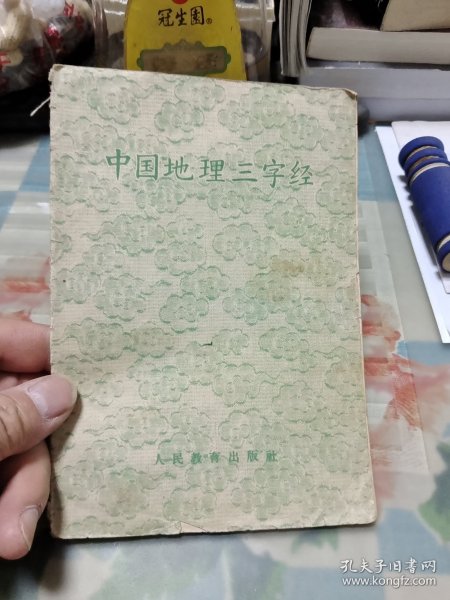 冠生園®
中国地理三字经
人民教育出版社
孔夫子旧书网
www.kongfz.com